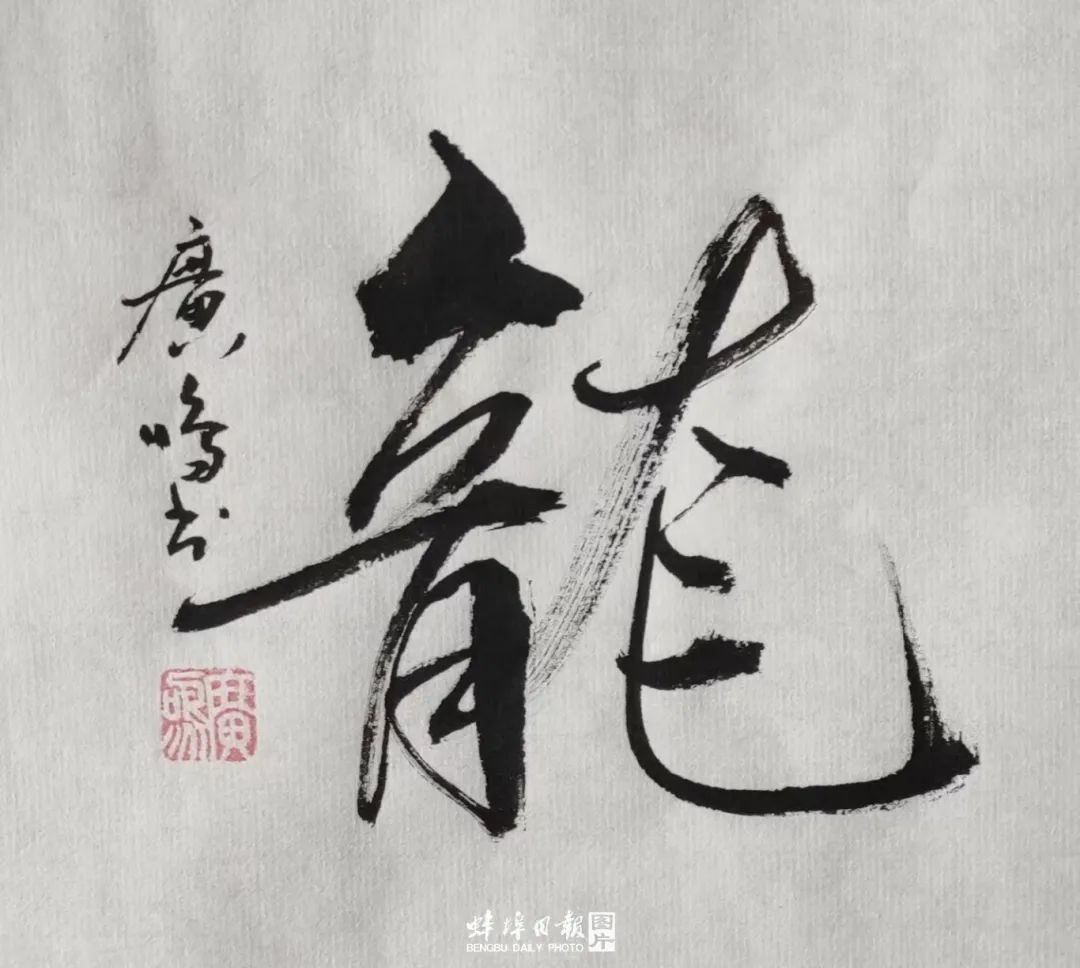 龍
廣鳴书
蚌埠日報 图片
BENGBU DAILY PHOTO